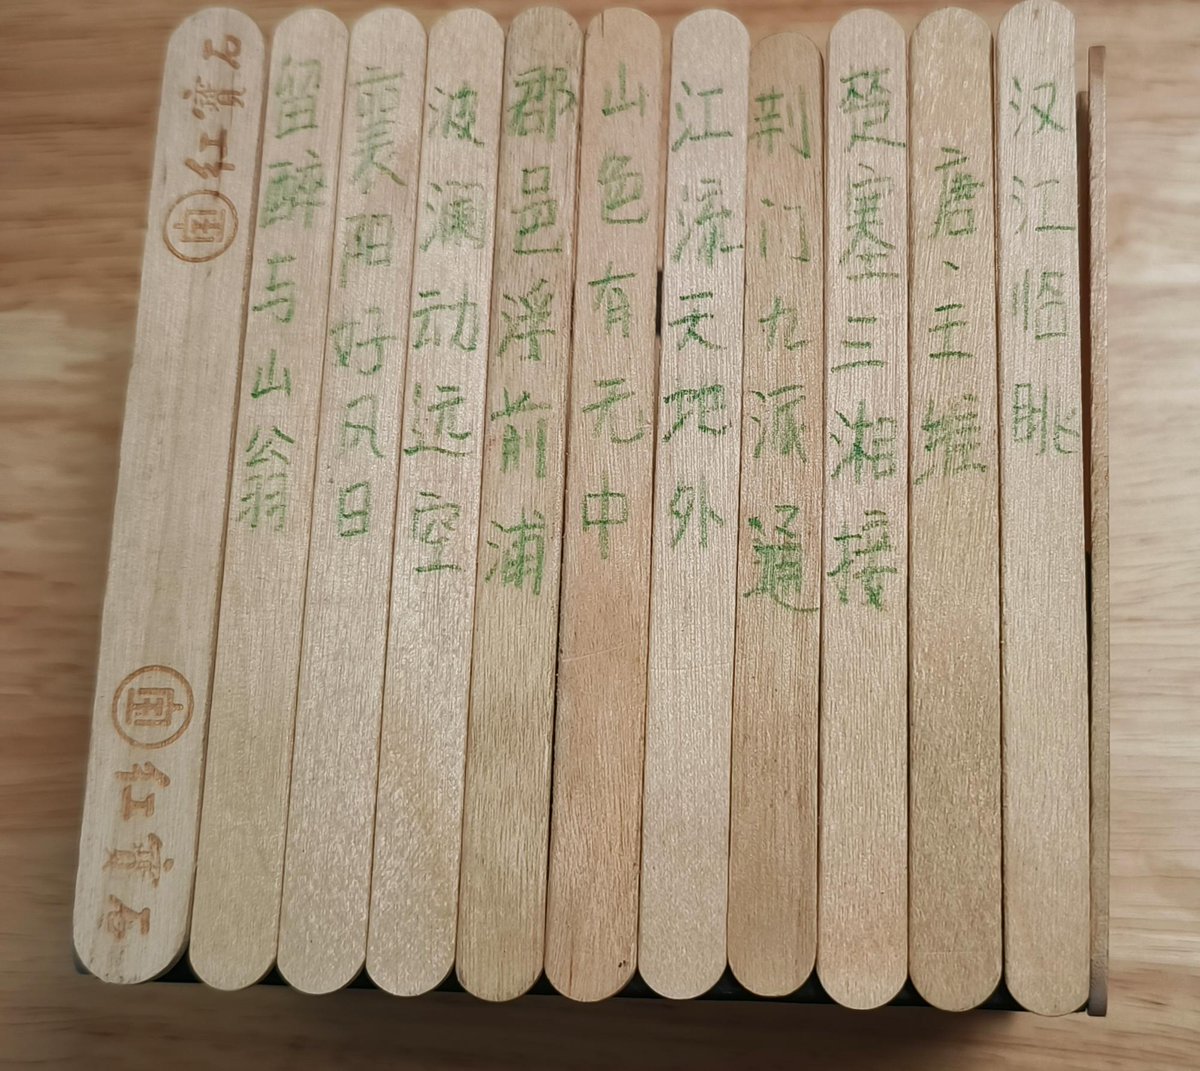 汉江临眺
唐、王维
楚塞三湘接
荆门九派通
江流天地外
山色有无中
郡邑浮前浦
波澜动远空
襄阳好风日
留醉与山翁
红寶石
红寶石